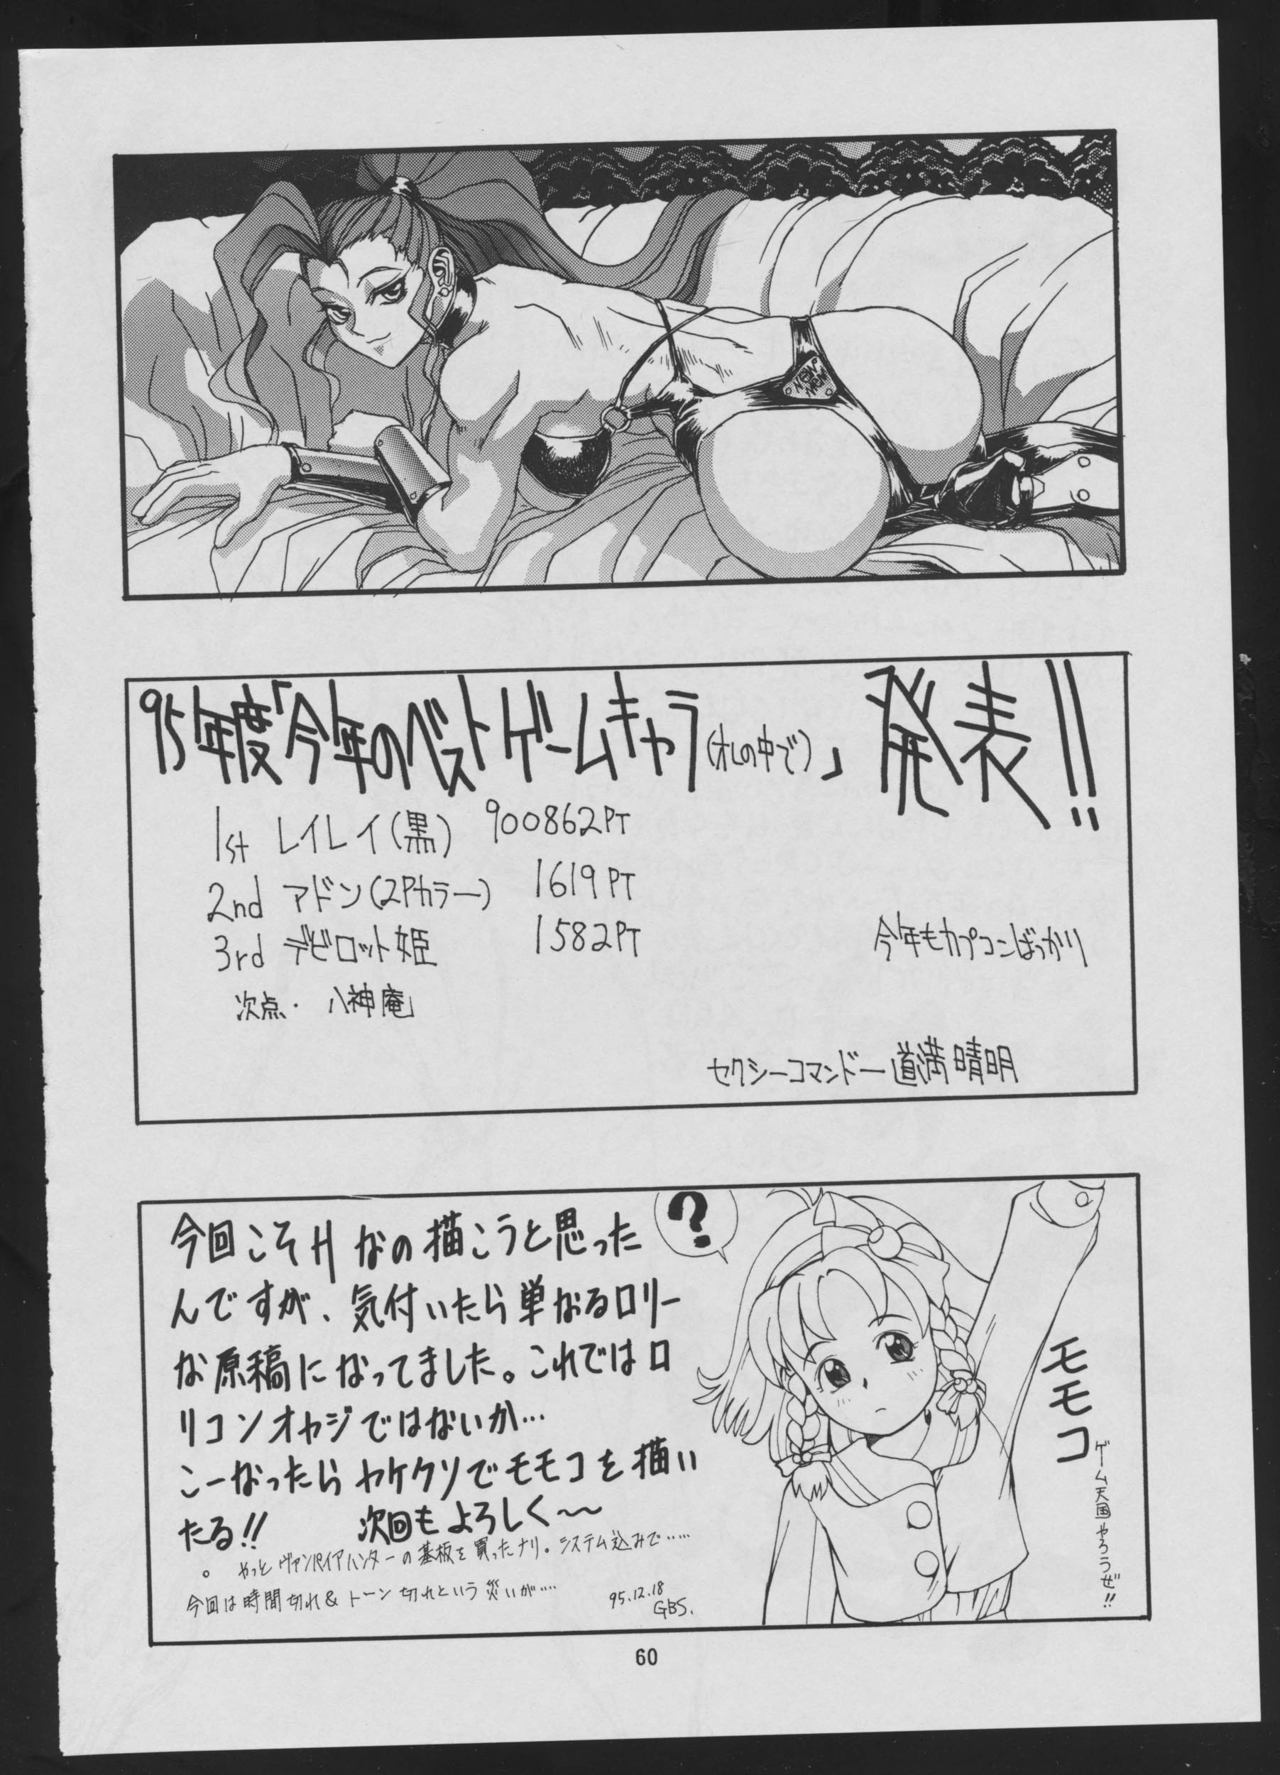 NEW
NEW
95年度「今年のベストゲームキャラ(オレの中で)」発表!!
1st レイレイ(黒) 900862PT
2nd アドン(2Pカラー) 1619PT
3rd デビロット姫 1582PT
次点・八神庵」
今年もカプコンばっかり
セクシーコマンドー道満晴明
?
今回こそHなの描こうと思った
んですが、気付いたら単なるロリー
な原稿になってました。これではロ
リコンオヤジではないか…
こーなったらヤケクソでモモコを描い
たる!! 次回もよろしく〜
。やっとヴァンパイアハンターの基板を買ったナリ。システム込みで……
今回は時間切れ&トーン切れという災いが……
95.12.18
GBS.
モモコ
ゲーム天国やろうぜ!!
60